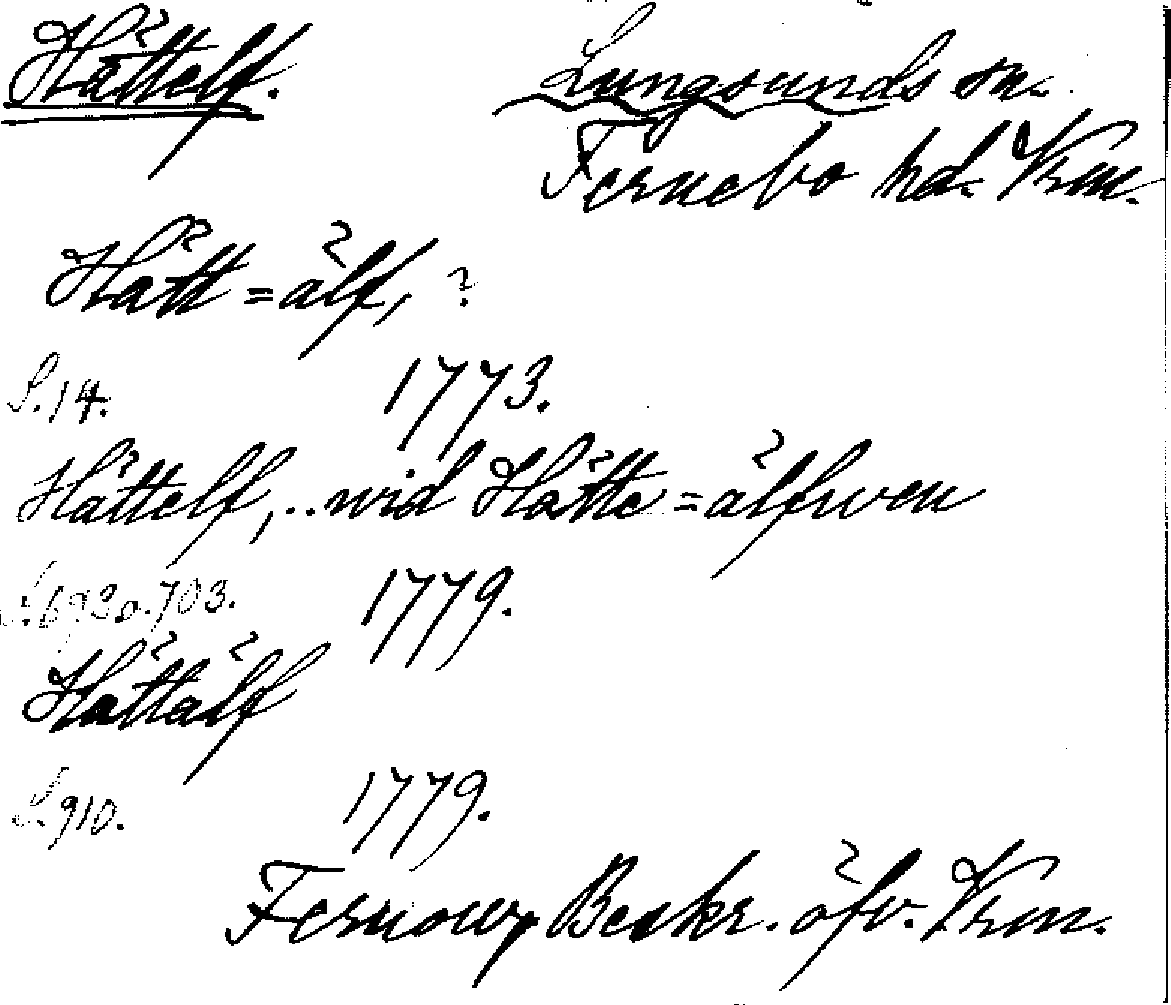 Hättelf. Lungsunds sn.
Fernebo hd. Vrm.
Hätt=älf, ?
S. 14. 1773.
Hättelf, .. wid Hätte=älfwen
S. 692 o. 703. 1779.
Hättälf
S. 910. 1779.
Fernow, Beskr. öfv. Vrm.